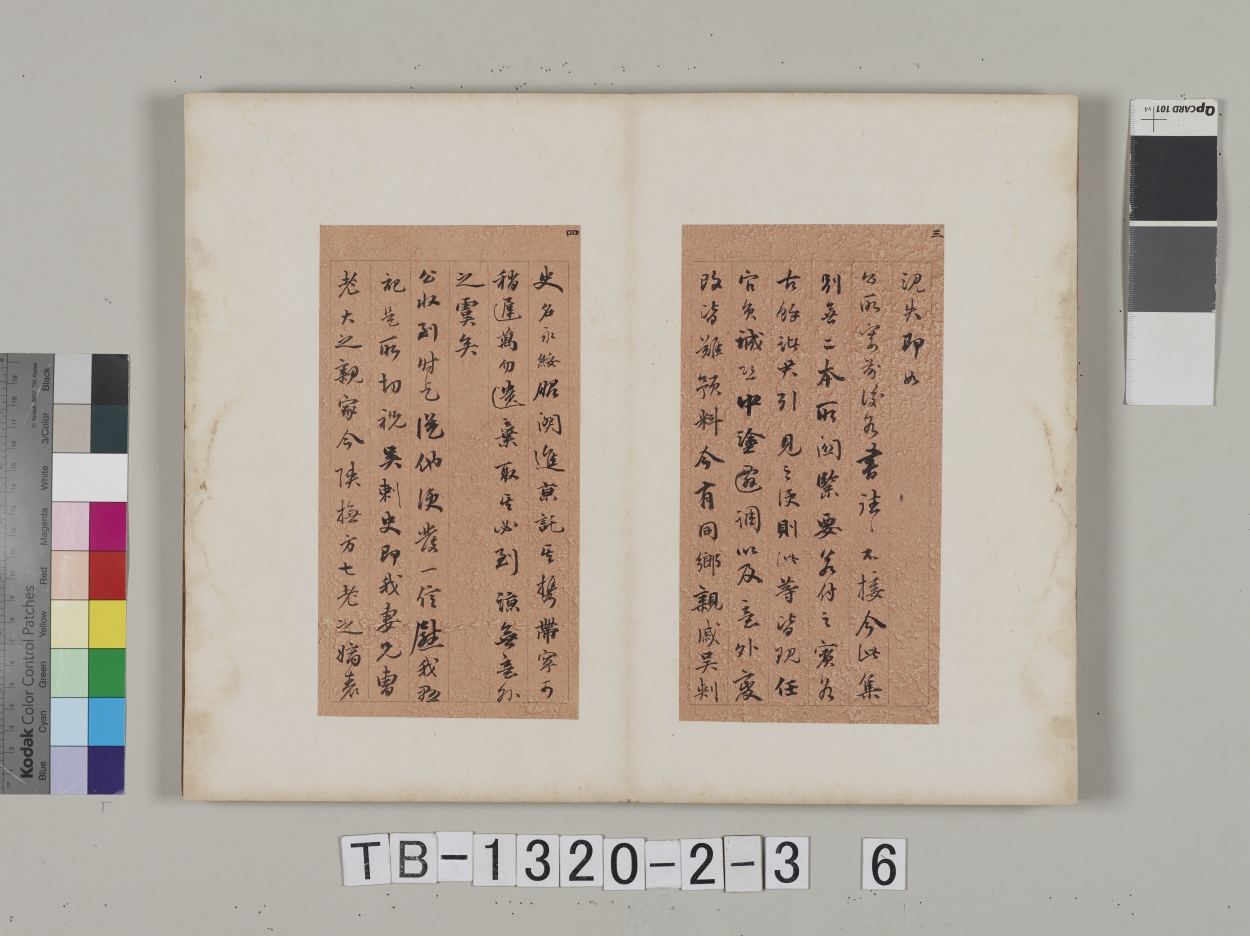 三
況失郎如
公所寄前後各書誌〻不接今此集
別無二本所関緊要若付之賓谷
古餘諸君引見之便則此等皆現任
官負誠恐中塗遷調以及意外変
改皆難預料今有同鄉親戚吳刺
四
史名永綏服闋進京託其携帶寧可
稽遲萬勿遺棄取其必到諒無意外
之虞矣
公收到時乞從他便發一信慰我懸
祀是所切祝吳刺史即我妻兄曹
老大之親家今陝撫方七老之嬌表
Kodak Color Control Patches
Blue Cyan Green Yellow Red Magenta White 3/Color Black
QpCARD 101 v4
TB-1320-2-3 6